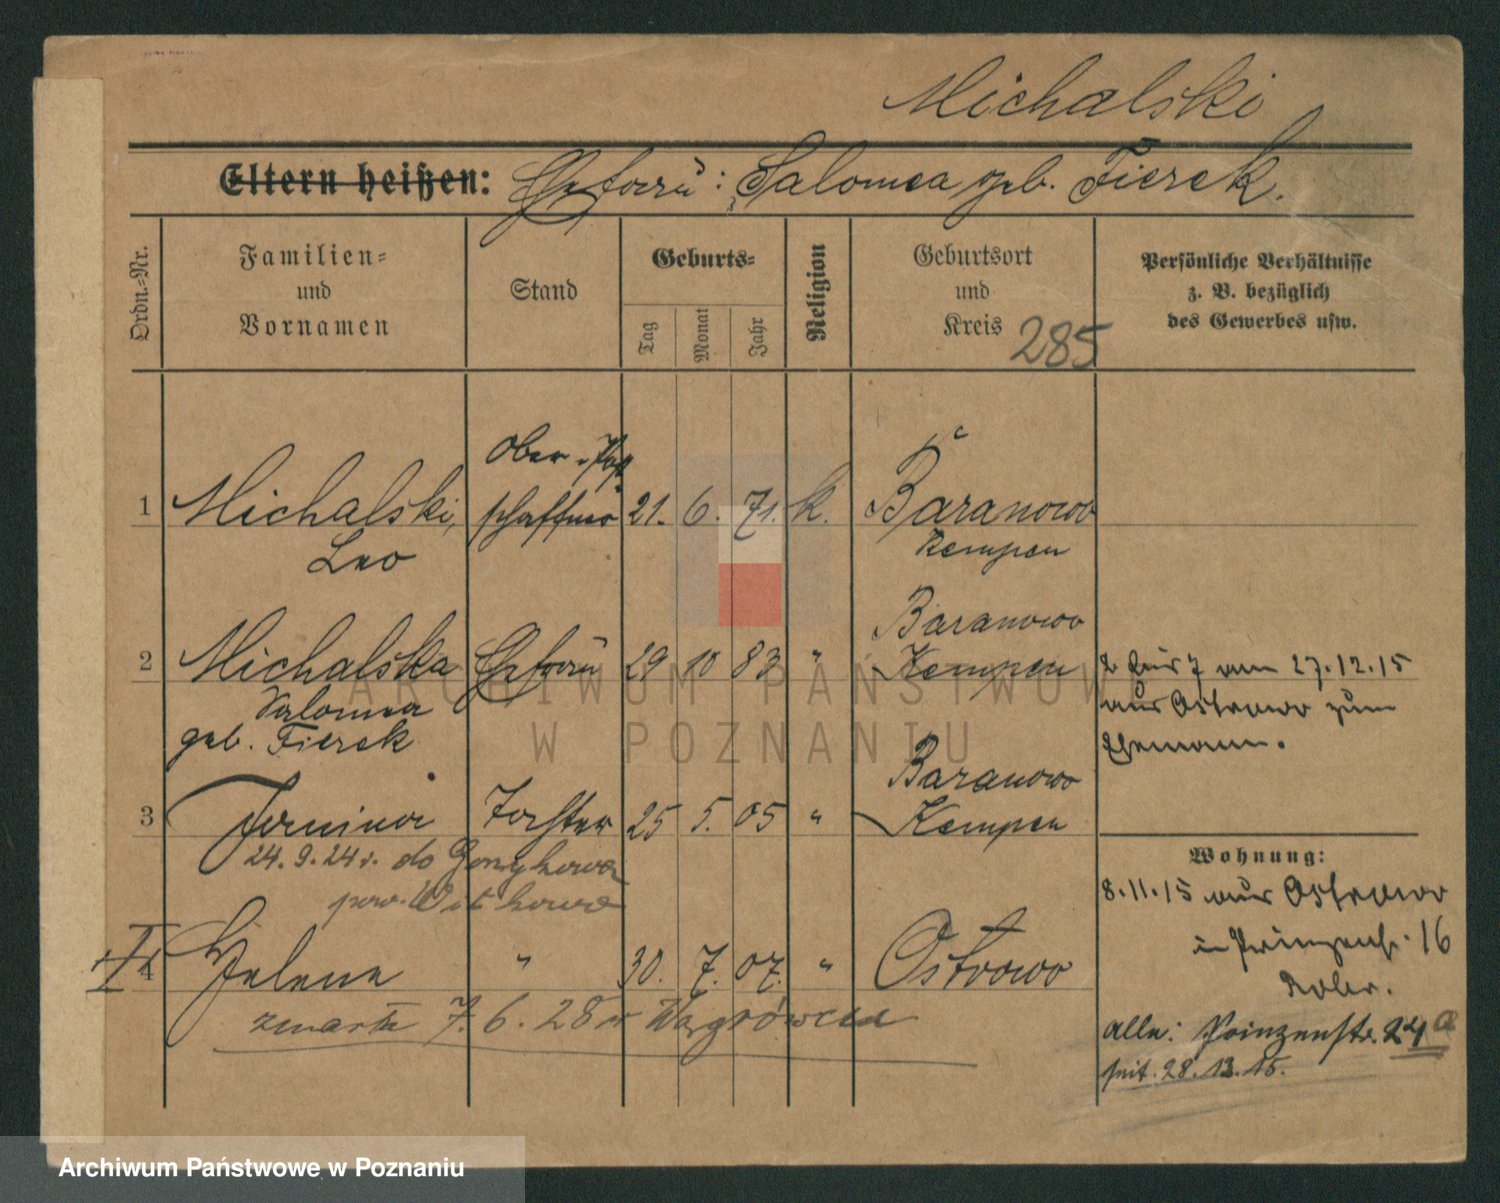 Michalski
Eltern heißen: Ehefrau: Salomea geb. Fierek.
Ordn.-Nr.
Familien-
und
Vornamen
Stand
Geburts-
Tag
Monat
Jahr
Religion
Geburtsort
und
Kreis
285
Persönliche Verhältnisse
z. B. bezüglich
des Gewerbes usw.
Ober-Post
1 Michalski, schaffner 21. 6. 71. k. Baranowo
Leo Kempen
Baranowo
2 Michalska Ehefrau 29 10 83 " Kempen
Salomea
geb. Fierek
2 bis 7 am 27.12.15
aus Ostrowo zum
Ehemann.
Baranowo
3 Janina Tochter 25 5. 05 " Kempen
24. 9. 24 r. do
pow. Witkowo
Wohnung:
8.11.15 aus Ostrowo
in Prinzenstr. 16
4 Helena " 30. 7. 07. " Ostrowo
zmarła 7. 6. 28 w Wągrówcu
alle: Prinzenstr. 24 a
seit 28. 12. 15.
ARCHIWUM PAŃSTWOWE
W POZNANIU
Archiwum Państwowe w Poznaniu